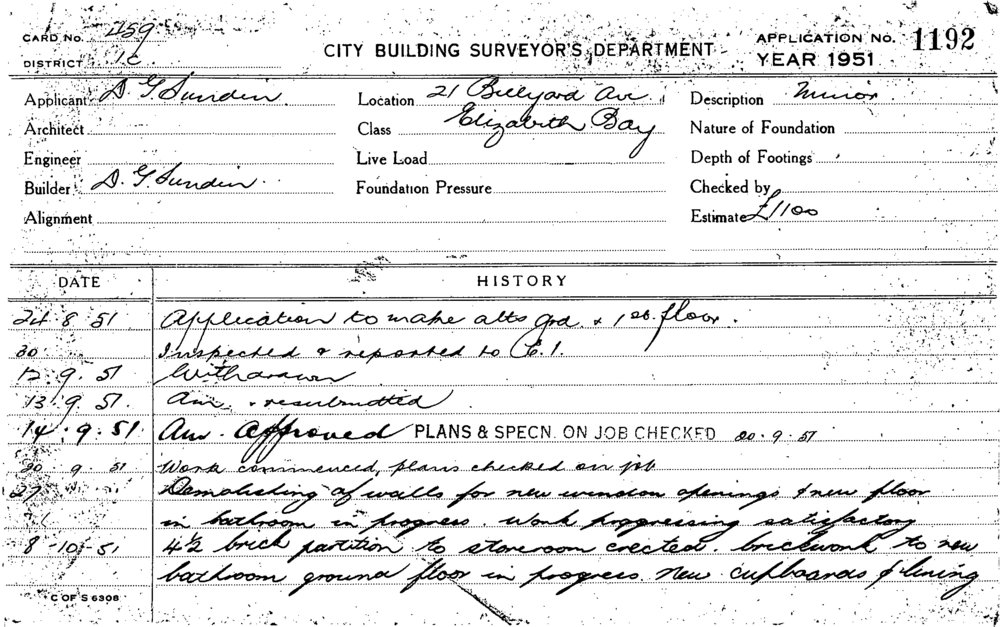 CARD NO. 459
DISTRICT 1C.
CITY BUILDING SURVEYOR'S DEPARTMENT
APPLICATION NO. 1192
YEAR 1951
Applicant D. G. Sundin
Location 21 Billyard Ave.
Description Minor
Architect
Class Elizabeth Bay
Nature of Foundation
Engineer
Live Load
Depth of Footings
Builder D. G. Sundin.
Foundation Pressure
Checked by
Alignment
Estimate £1100
DATE HISTORY
24 8 51 Application to make alts grd. & 1st floor.
30 Inspected & reported to C.I.
12. 9. 51 Withdrawn
13. 9. 51. Am. & resubmitted
14. 9. 51. Am. Approved PLANS & SPECN. ON JOB CHECKED 20. 9. 51
20 9. 51 Work commenced, plans checked on job
27 Demolishing of walls for new window openings & new floor
in bathroom in progress. Work proggressing satisfactory
8 - 10 - 51 4½ brick partition to storeroom erected. brickwork to new
bathroom ground floor in progress. New cupboards & lining
C OF S 6308